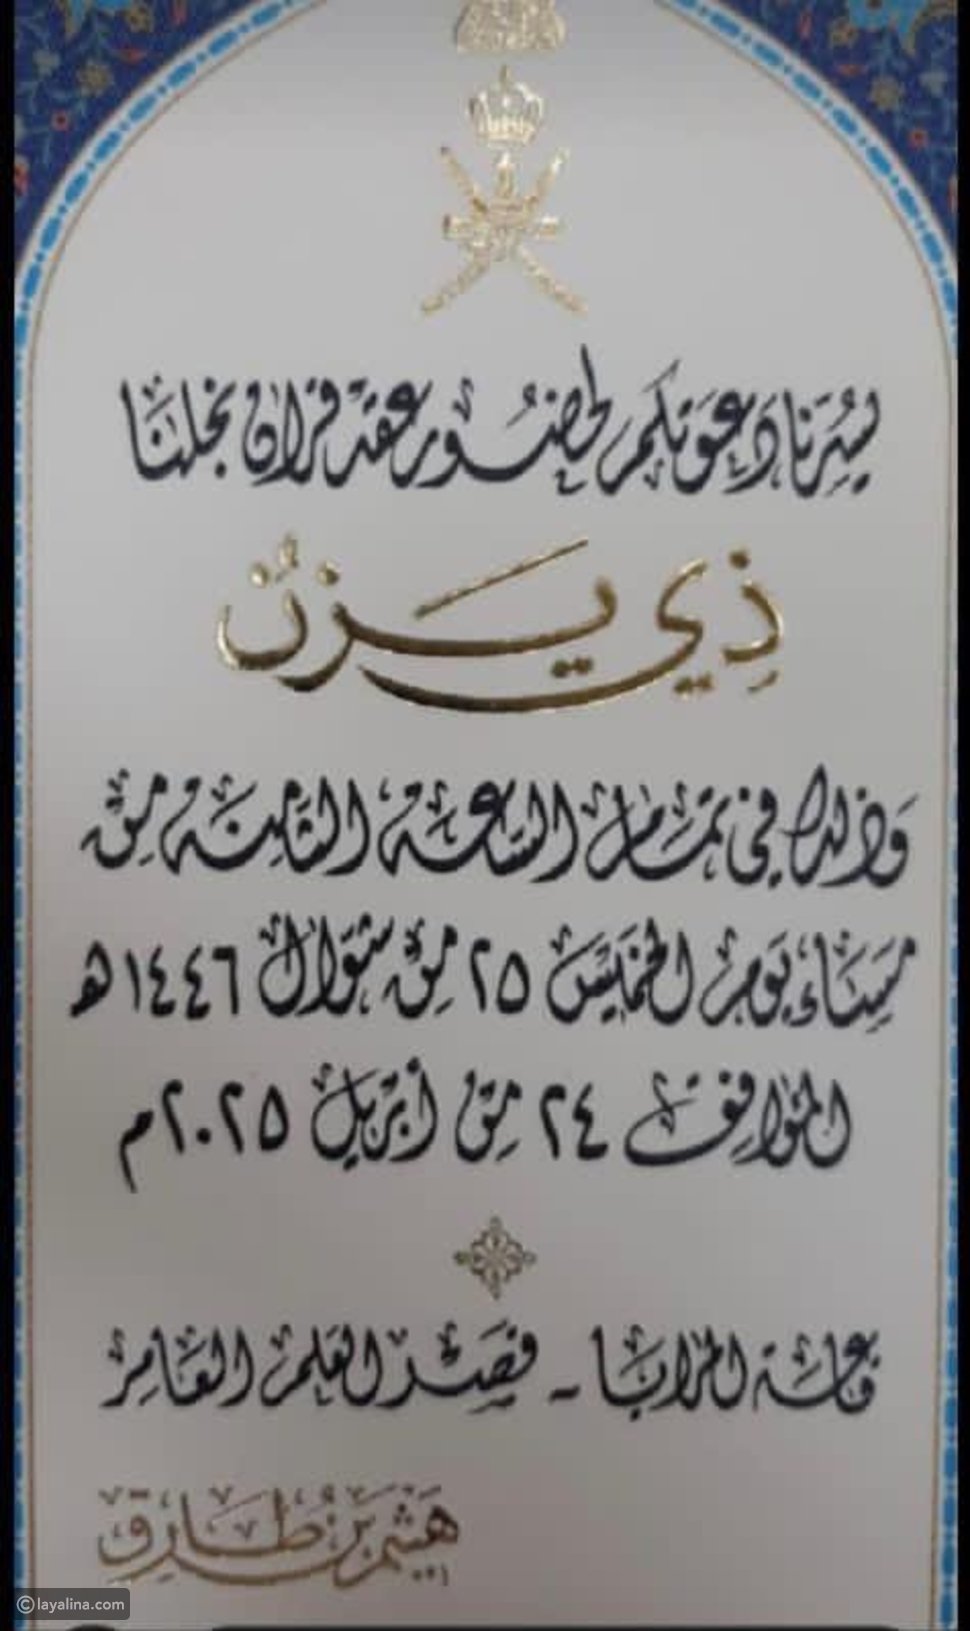 يسرنا دعوتكم لحضور عقد قران نجلنا
ذي يزن
وذلك في تمام الساعة الثامنة من
مساء يوم الخميس ٢٥ من شوال ١٤٤٦ هـ
الموافق ٢٤ من أبريل ٢٠٢٥م
قاعة المرايا - قصر العلم العامر
هيثم بن طارق
©layalina.com